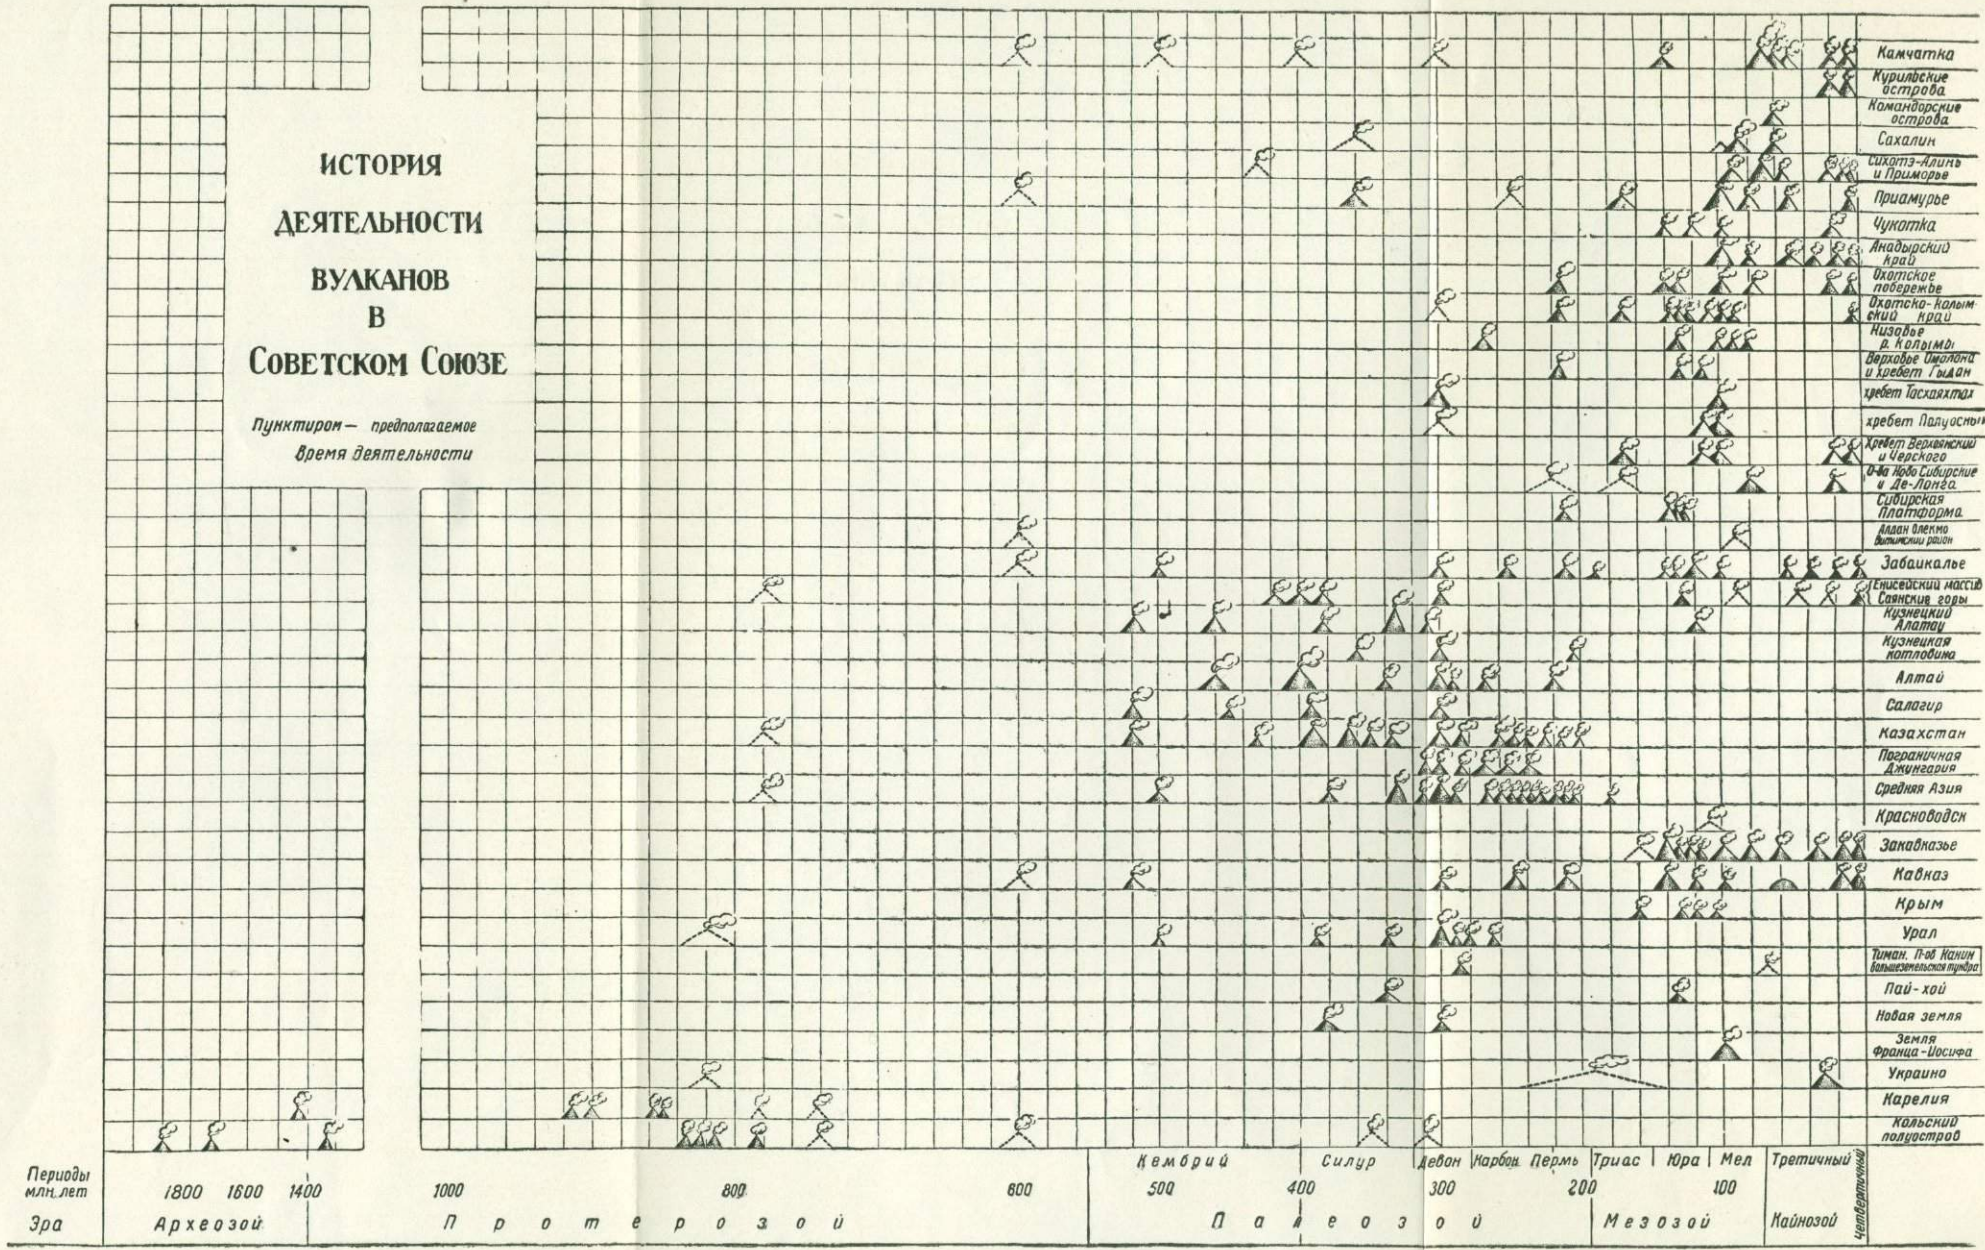 ИСТОРИЯ
ДЕЯТЕЛЬНОСТИ
ВУЛКАНОВ
В
СОВЕТСКОМ СОЮЗЕ
Пунктиром — предполагаемое
время деятельности
Камчатка
Курильские
острова
Командорские
острова
Сахалин
Сихотэ-Алинь
и Приморье
Приамурье
Чукотка
Анадырский
край
Охотское
побережье
Охотско-колым-
ский край
Низовье
р. Колымы
Верховье Омолона
и хребет Гыдан
хребет Тасхаяхтах
хребет Полуосный
Хребет Верхоянский
и Черского
О-ва Ново Сибирские
и Де-Лонга
Сибирская
Платформа
Алдан Олекмо
Витимский район
Забайкалье
Енисейский массив
Саянские горы
Кузнецкий
Алатау
Кузнецкая
котловина
Алтай
Салагир
Казахстан
Пограничная
Джунгария
Средняя Азия
Красноводск
Закавказье
Кавказ
Крым
Урал
Тиман. П-ов Канин
Большеземельская тундра
Пай-хой
Новая земля
Земля
Франца-Иосифа
Украино
Карелия
Кольский
полуостров
Периоды Кембрий Силур Девон Карбон Пермь Триас Юра Мел Третичный Четвертичный
млн. лет 1800 1600 1400 1000 800 600 500 400 300 200 100
Эра Археозой Протерозой Палеозой Мезозой Кайнозой